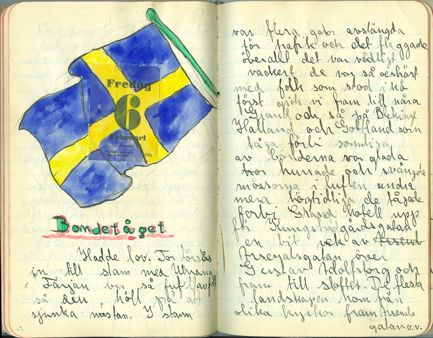 Fredag
6
Februari
Bondetåget
Hade lov. For förs
in till stan med
Färjan var så fullastad
så den höll på att
sjunka nästan. I stan
var flera gator avstängda
för trafik och det flaggade
överallt det var väldigt
vackert. de var så oerhört
med folk som stod i kö
först gick vi fram till nära
Grand och så på Blekinge
Halland och Gottland som
tåga förbi somliga
av bönderna var glada
hurrade och svängde
mössorna i luften andra
mera högtidliga de tågade
förbi Grand Hotell upp
för Kungsträdgårdsgatan
en bit vek av Arsena
Arsenalsgatan över
Gustavs Adolfstorg och
fram till slottet. De flesta
landskapen kom från
olika kyrkor fram Arsenals
gatan o.v.